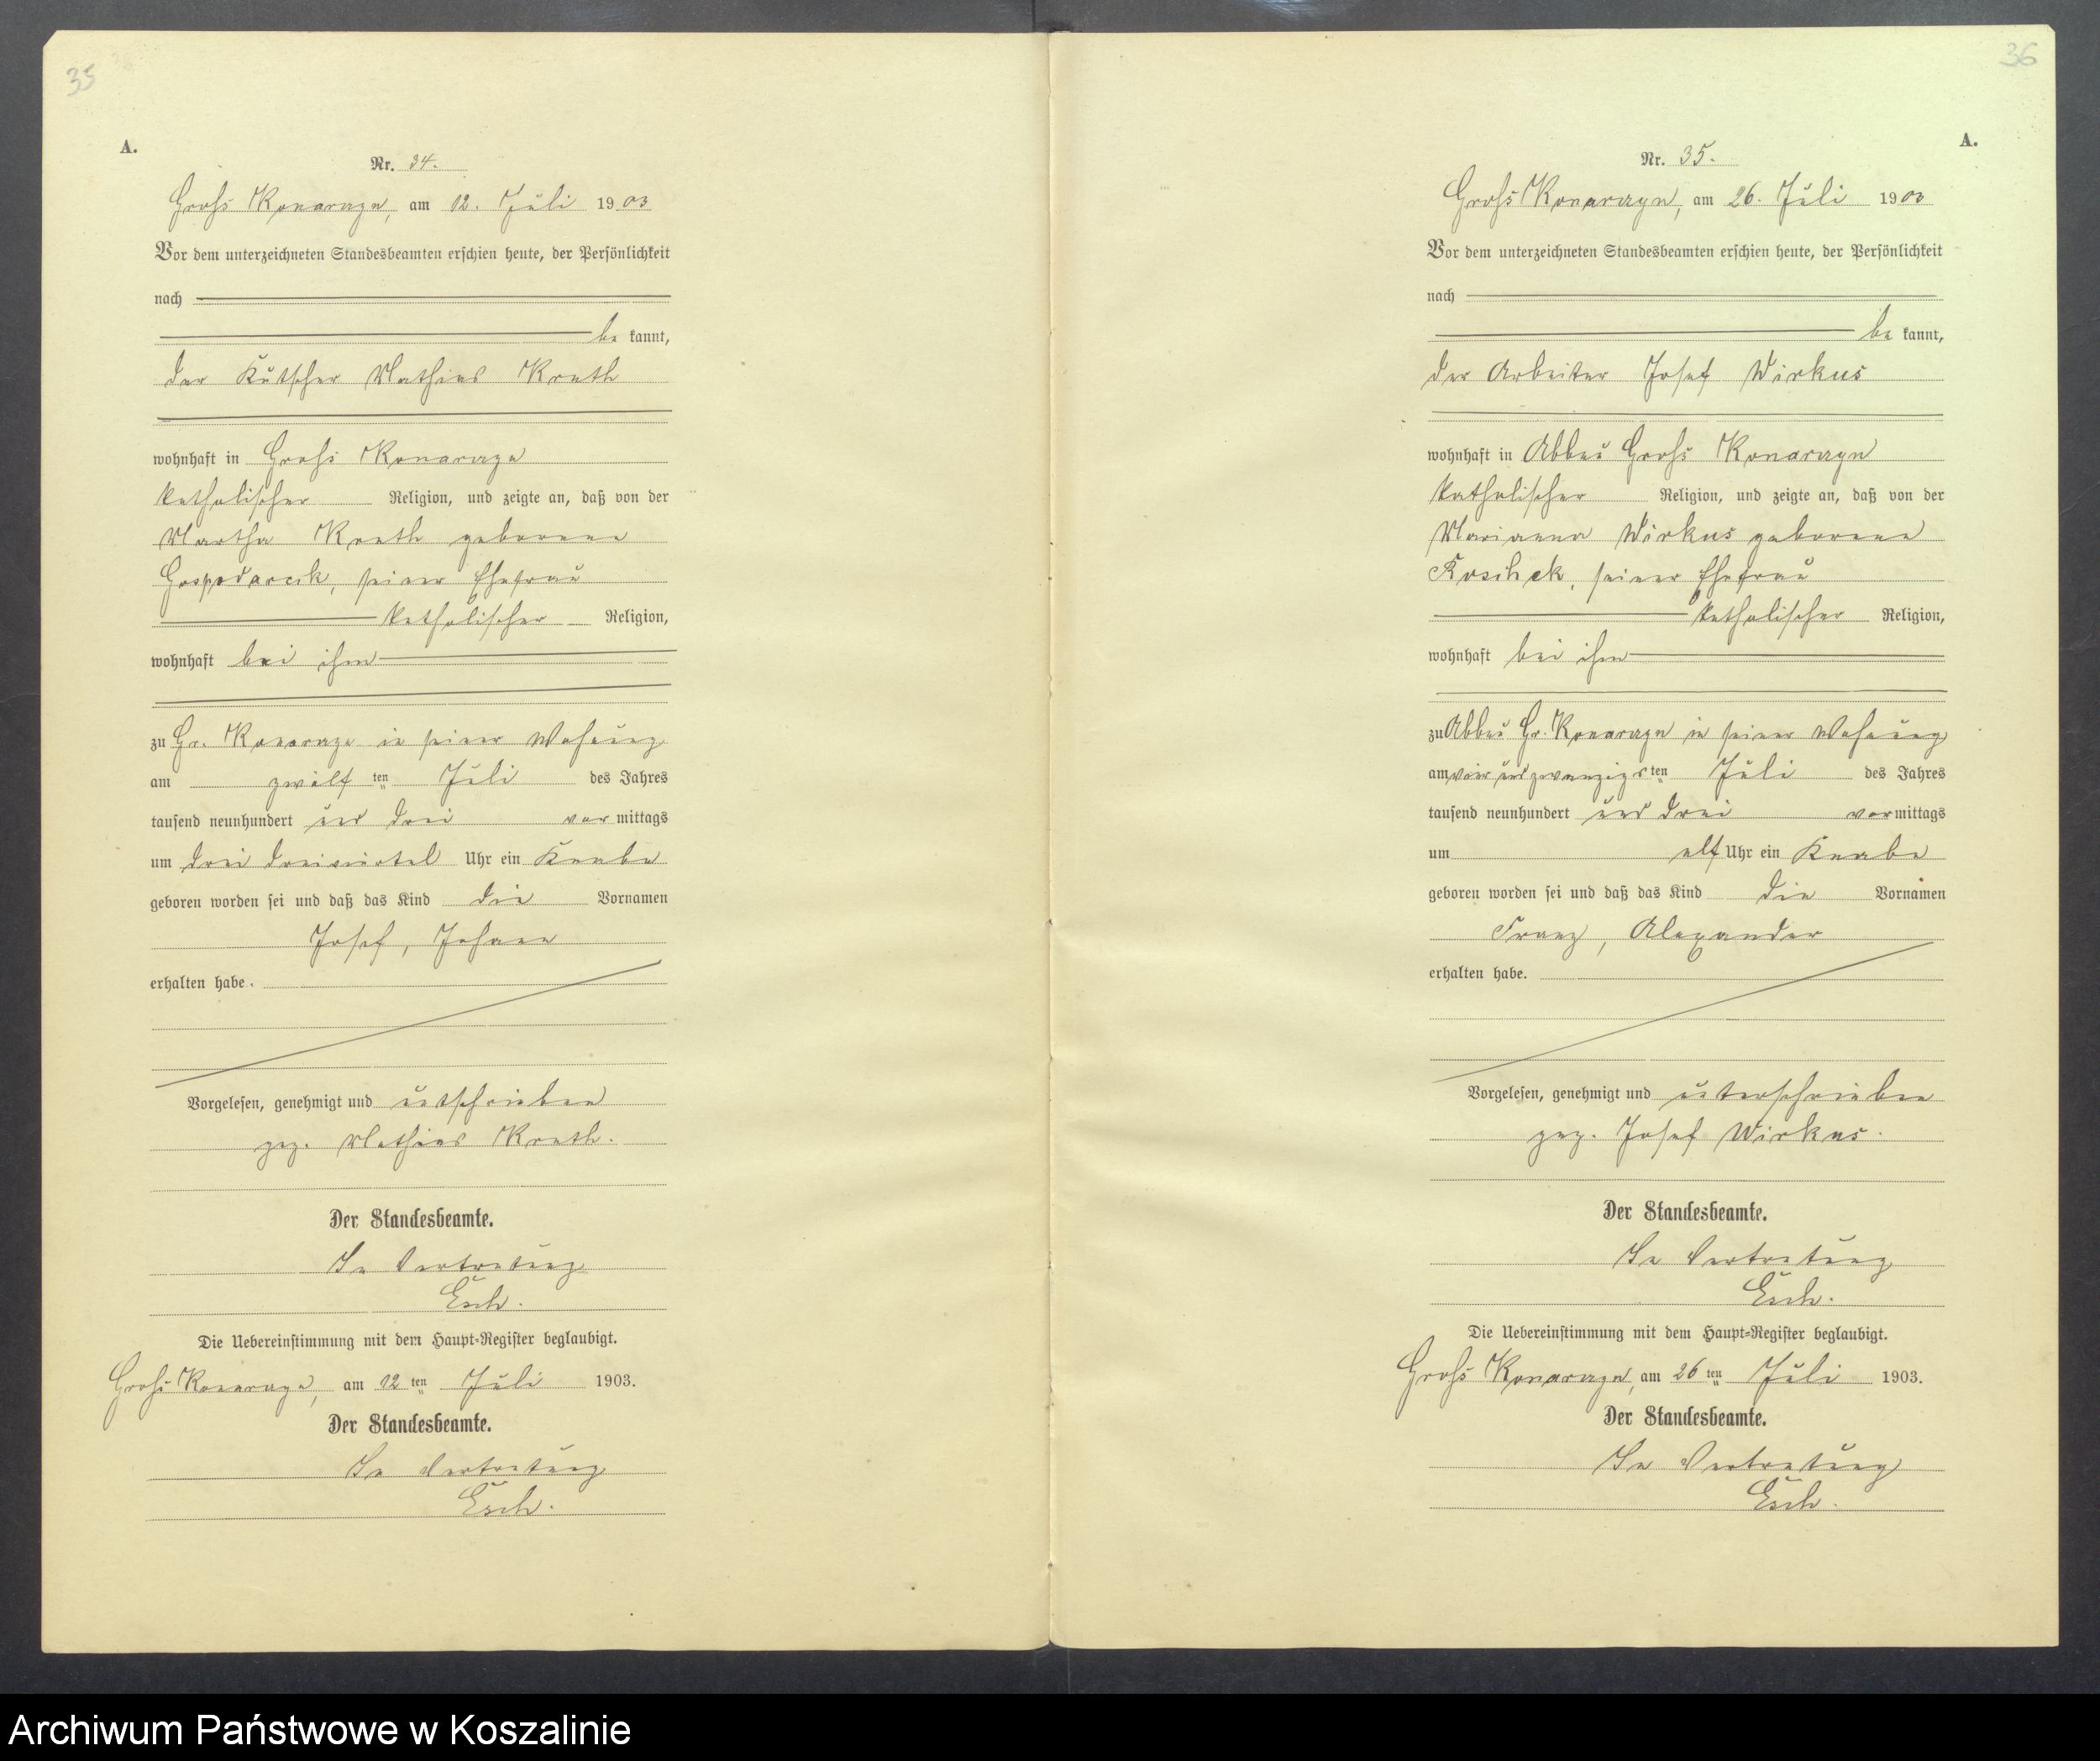 35
A.
Nr. 34.
Groß Konarzyn, am 12. Juli 1903
Vor dem unterzeichneten Standesbeamten erschien heute, der Persönlichkeit
nach
be kannt,
der Kutscher Mathias Kroth
wohnhaft in Groß Konarzyn
katholischer Religion, und zeigte an, daß von der
Martha Kroth geborene
Gospodarcik, seiner Ehefrau
katholischer Religion,
wohnhaft bei ihm
zu Gr. Konarzyn in seiner Wohnung
am zwölf ten Juli des Jahres
tausend neunhundert und drei vor mittags
um drei dreiviertel Uhr ein Knabe
geboren worden sei und daß das Kind die Vornamen
Josef, Johann
erhalten habe.
Vorgelesen, genehmigt und
gez. Mathias Kroth.
Der Standesbeamte.
In Vertretung
Esch.
Die Uebereinstimmung mit dem Haupt-Register beglaubigt.
Groß Konarzyn, am 12 ten Juli 1903.
Der Standesbeamte.
In Vertretung
Esch.
36
A.
Nr. 35.
Groß Konarzyn, am 26. Juli 1903
Vor dem unterzeichneten Standesbeamten erschien heute, der Persönlichkeit
nach
be kannt,
der Arbeiter Josef Wirkus
wohnhaft in Abbau Groß Konarzyn
katholischer Religion, und zeigte an, daß von der
Marianna Wirkus geborene
seiner Ehefrau
katholischer Religion,
wohnhaft bei ihm
zu Abbau Gr. Konarzyn in seiner Wohnung
am vier und zwanzigs ten Juli des Jahres
tausend neunhundert und drei vor mittags
um elf Uhr ein Knabe
geboren worden sei und daß das Kind die Vornamen
Franz, Alexander
erhalten habe.
Vorgelesen, genehmigt und unterschrieben
gez. Josef Wirkus.
Der Standesbeamte.
In Vertretung
Esch.
Die Uebereinstimmung mit dem Haupt-Register beglaubigt.
Groß Konarzyn, am 26 ten Juli 1903.
Der Standesbeamte.
In Vertretung
Esch.
Archiwum Państwowe w Koszalinie